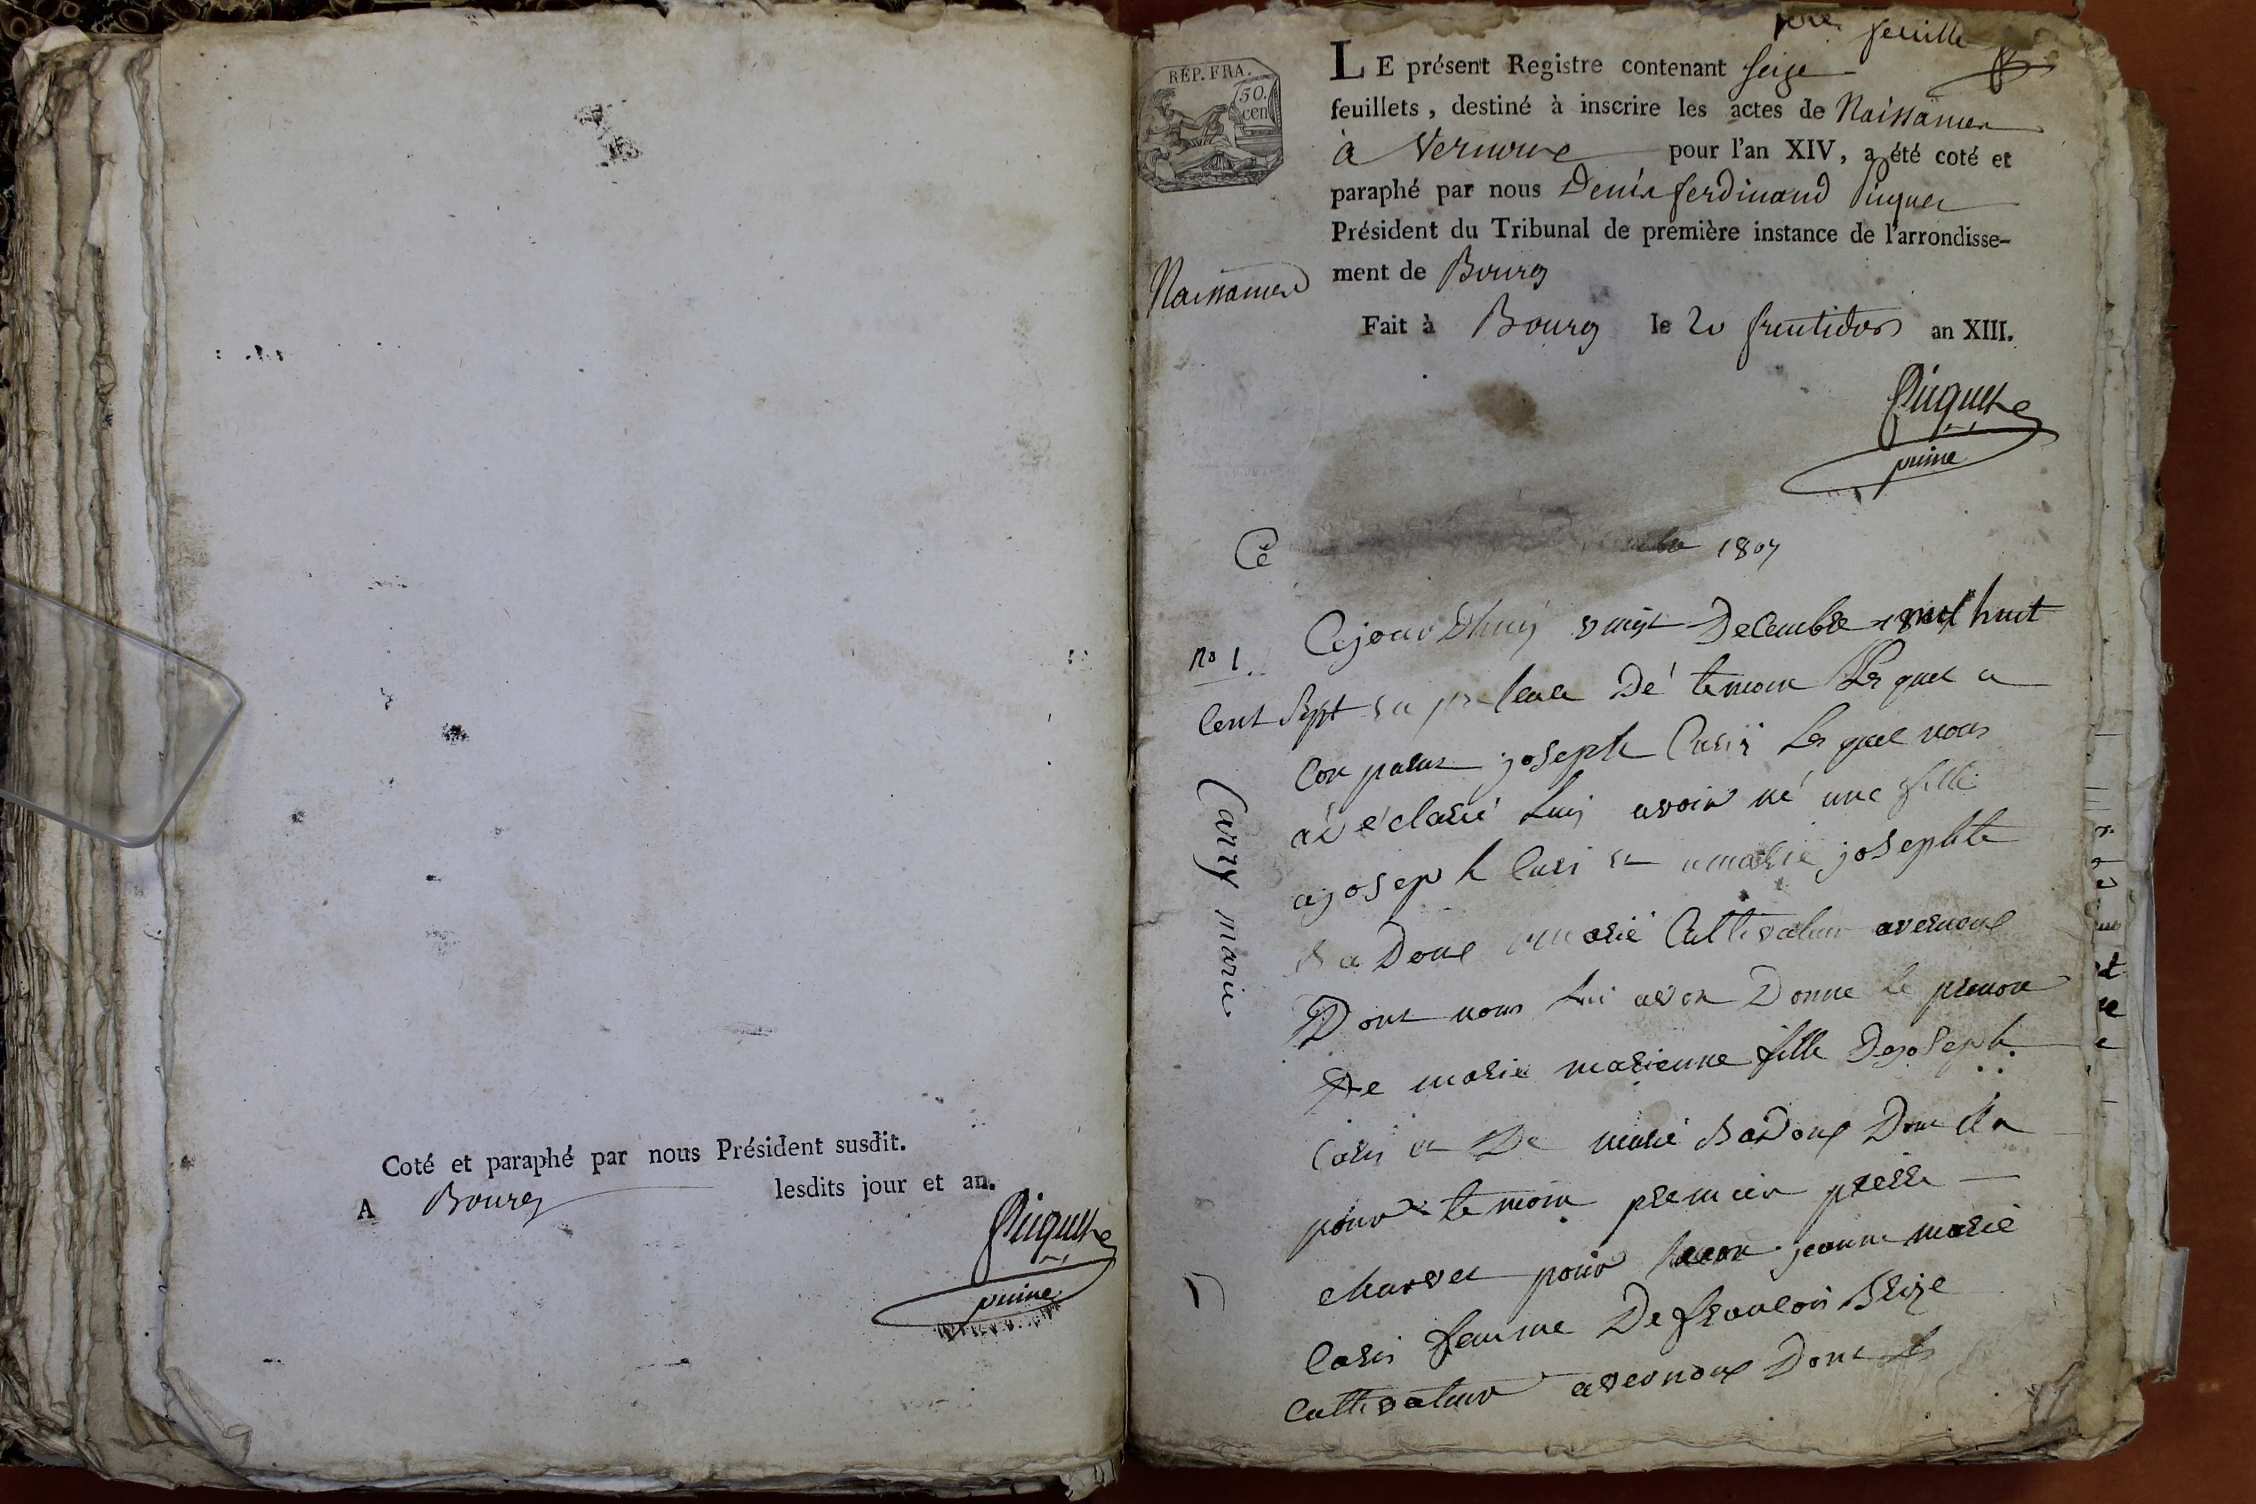 Coté et paraphé par nous Président susdit.
A Bourg lesdits jour et an.
Picquet
prime
1ere feuille
RÉP. FRA.
50.
cen
LE présent Registre contenant seize
feuillets, destiné à inscrire les actes de Naissances
à Vernoux pour l'an XIV, a été coté et
paraphé par nous Denis ferdinand Picquet
Président du Tribunal de première instance de l'arrondisse-
ment de Bourg
Naissances
Fait à Bourg le 20 fructidor an XIII.
Picquet
prime
Ce 1807
No 1.
Cejourdhuy vingt Decembre mil huit
Cent Sept en presence de temoin Lesquel a
Conparut joseph Cari Lesquel nous
a déclaré Luy avoir né une fille
a joseph Cari et a marie josephte
Badoux marié Cultivateur avernoux
Dont nous Lui avon Donne le prenon
De marie marienne fille Dejoseph
Cari et De marie Badoux Dont
pour temoin premier pierre
charvet pour jeanne marie
Cari femme De francois Brize
Cultivateur avernoux Dont les
Carry marie